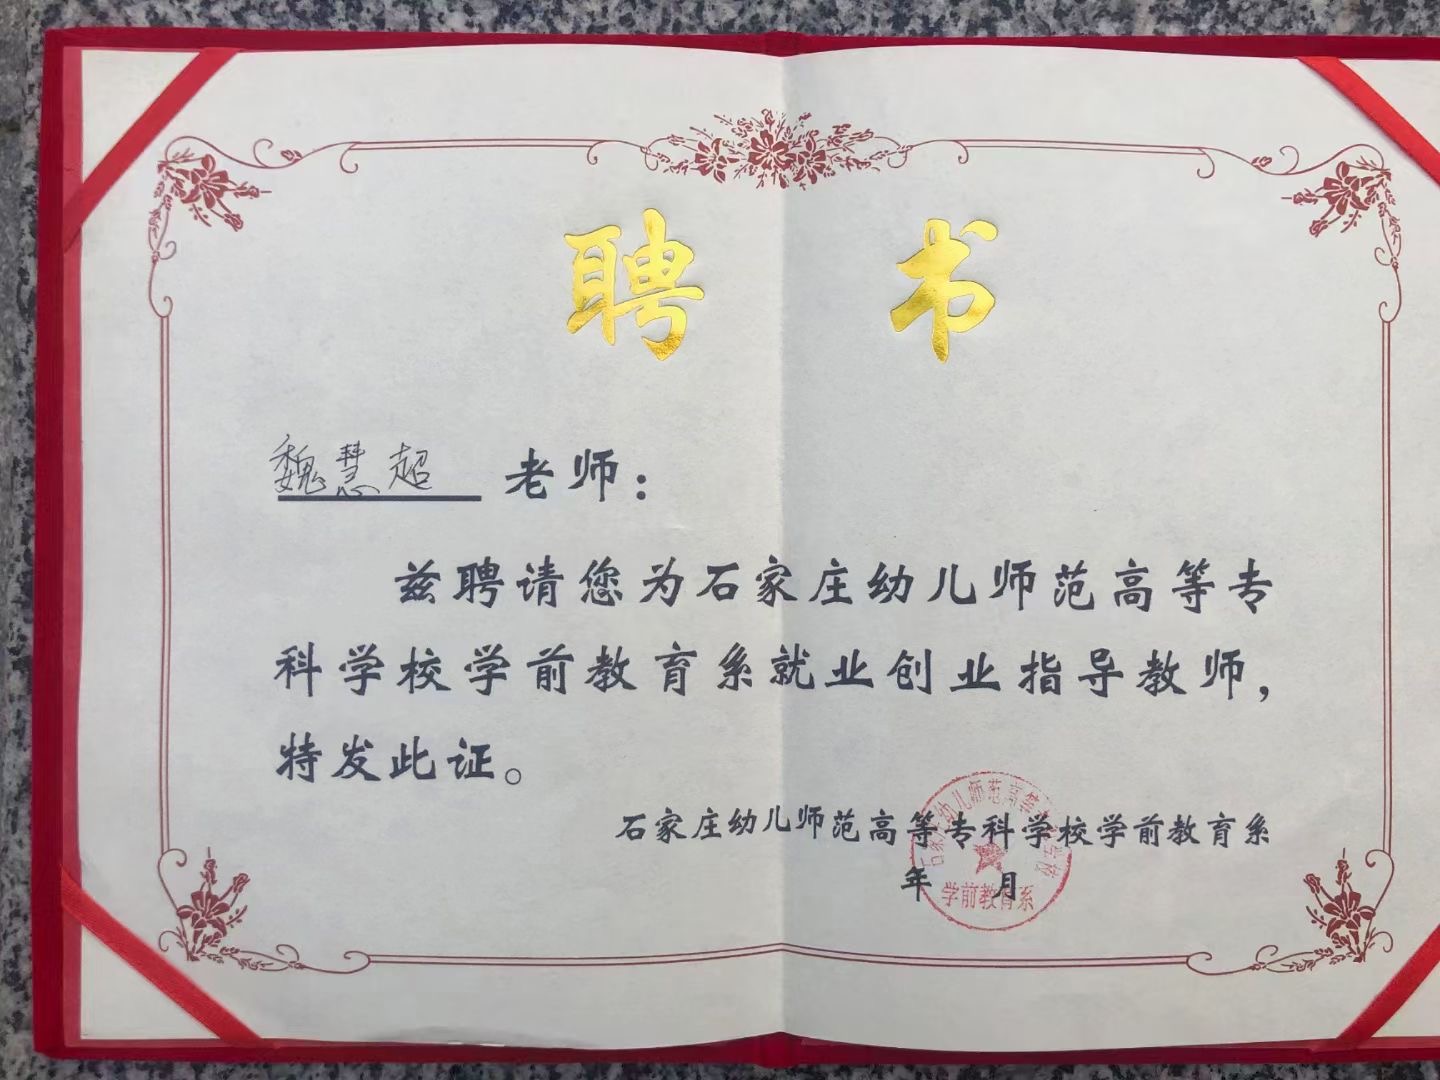 聘 书
魏慧超 老师：
兹聘请您为石家庄幼儿师范高等专
科学校学前教育系就业创业指导教师，
特发此证。
石家庄幼儿师范高等专科学校学前教育系
年 月
石家庄幼儿师范高等专科学校
学前教育系